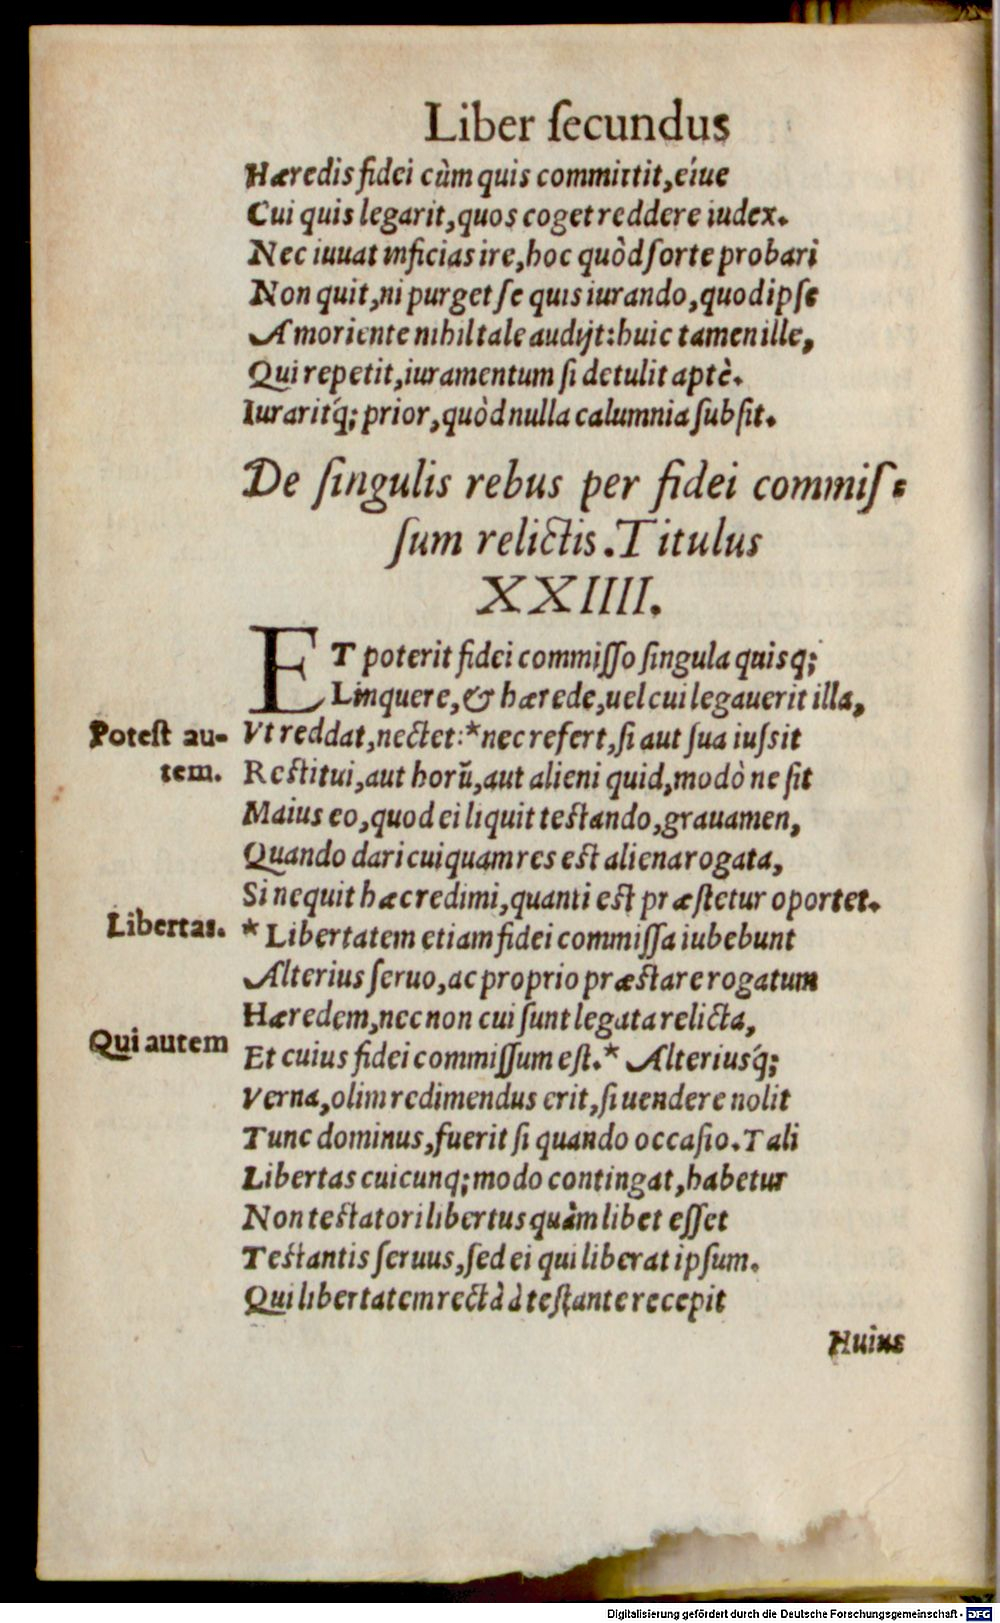 Liber ſecundus
Hæredis fidei cùm quis commirtit, eíue
Cui quis legarit, quos coget reddere iudex.
Nec iuuat inficias ire, hoc quòd ſorte probari
Non quit, ni purget ſe quis iurando, quod ipſe
A moriente nihil tale audijt: huic tamen ille,
Qui repetit, iuramentum ſi detulit aptè.
Iuraritq́; prior, quòd nulla calumnia ſubſit.
De ſingulis rebus per fidei commiſ-
ſum relictis. Titulus
XXIIII.
ET poterit fidei commiſſo ſingula quisq;
Linquere, & hærede, uel cui legauerit illa,
Potest au-
tem.
Vt reddat, nectet: * nec refert, ſi aut ſua iuſsit
Restitui, aut horū, aut alieni quid, modò ne ſit
Maius eo, quod ei liquit testando, grauamen,
Quando dari cuiquam res est aliena rogata,
Si nequit hæc redimi, quanti est præſtetur oportet.
Libertas.
* Libertatem etiam fidei commiſſa iubebunt
Alterius ſeruo, ac proprio præstare rogatum
Hæredem, nec non cui ſunt legata relicta,
Qui autem
Et cuius fidei commiſſum eſt. * Alteriusq́;
Verna, olim redimendus erit, ſi uendere nolit
Tunc dominus, fuerit ſi quando occaſio. Tali
Libertas cuicunq; modo contingat, habetur
Non testatori libertus quàmlibet eſſet
Testantis ſeruus, ſed ei qui liberat ipſum.
Qui libertatem rectà à teſtante recepit
Huius
Digitalisierung gefördert durch die Deutsche Forschungsgemeinschaft - DFG